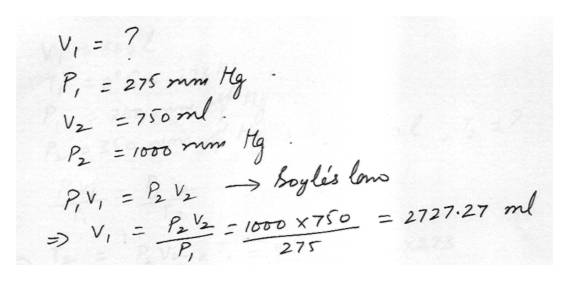 V₁ = ?
P₁ = 275 mm Hg.
V₂ = 750 ml.
P₂ = 1000 mm Hg.
P₁V₁ = P₂V₂ → Boyle's law
⇒ V₁ = P₂V₂/P₁ = 1000 × 750/275 = 2727.27 ml